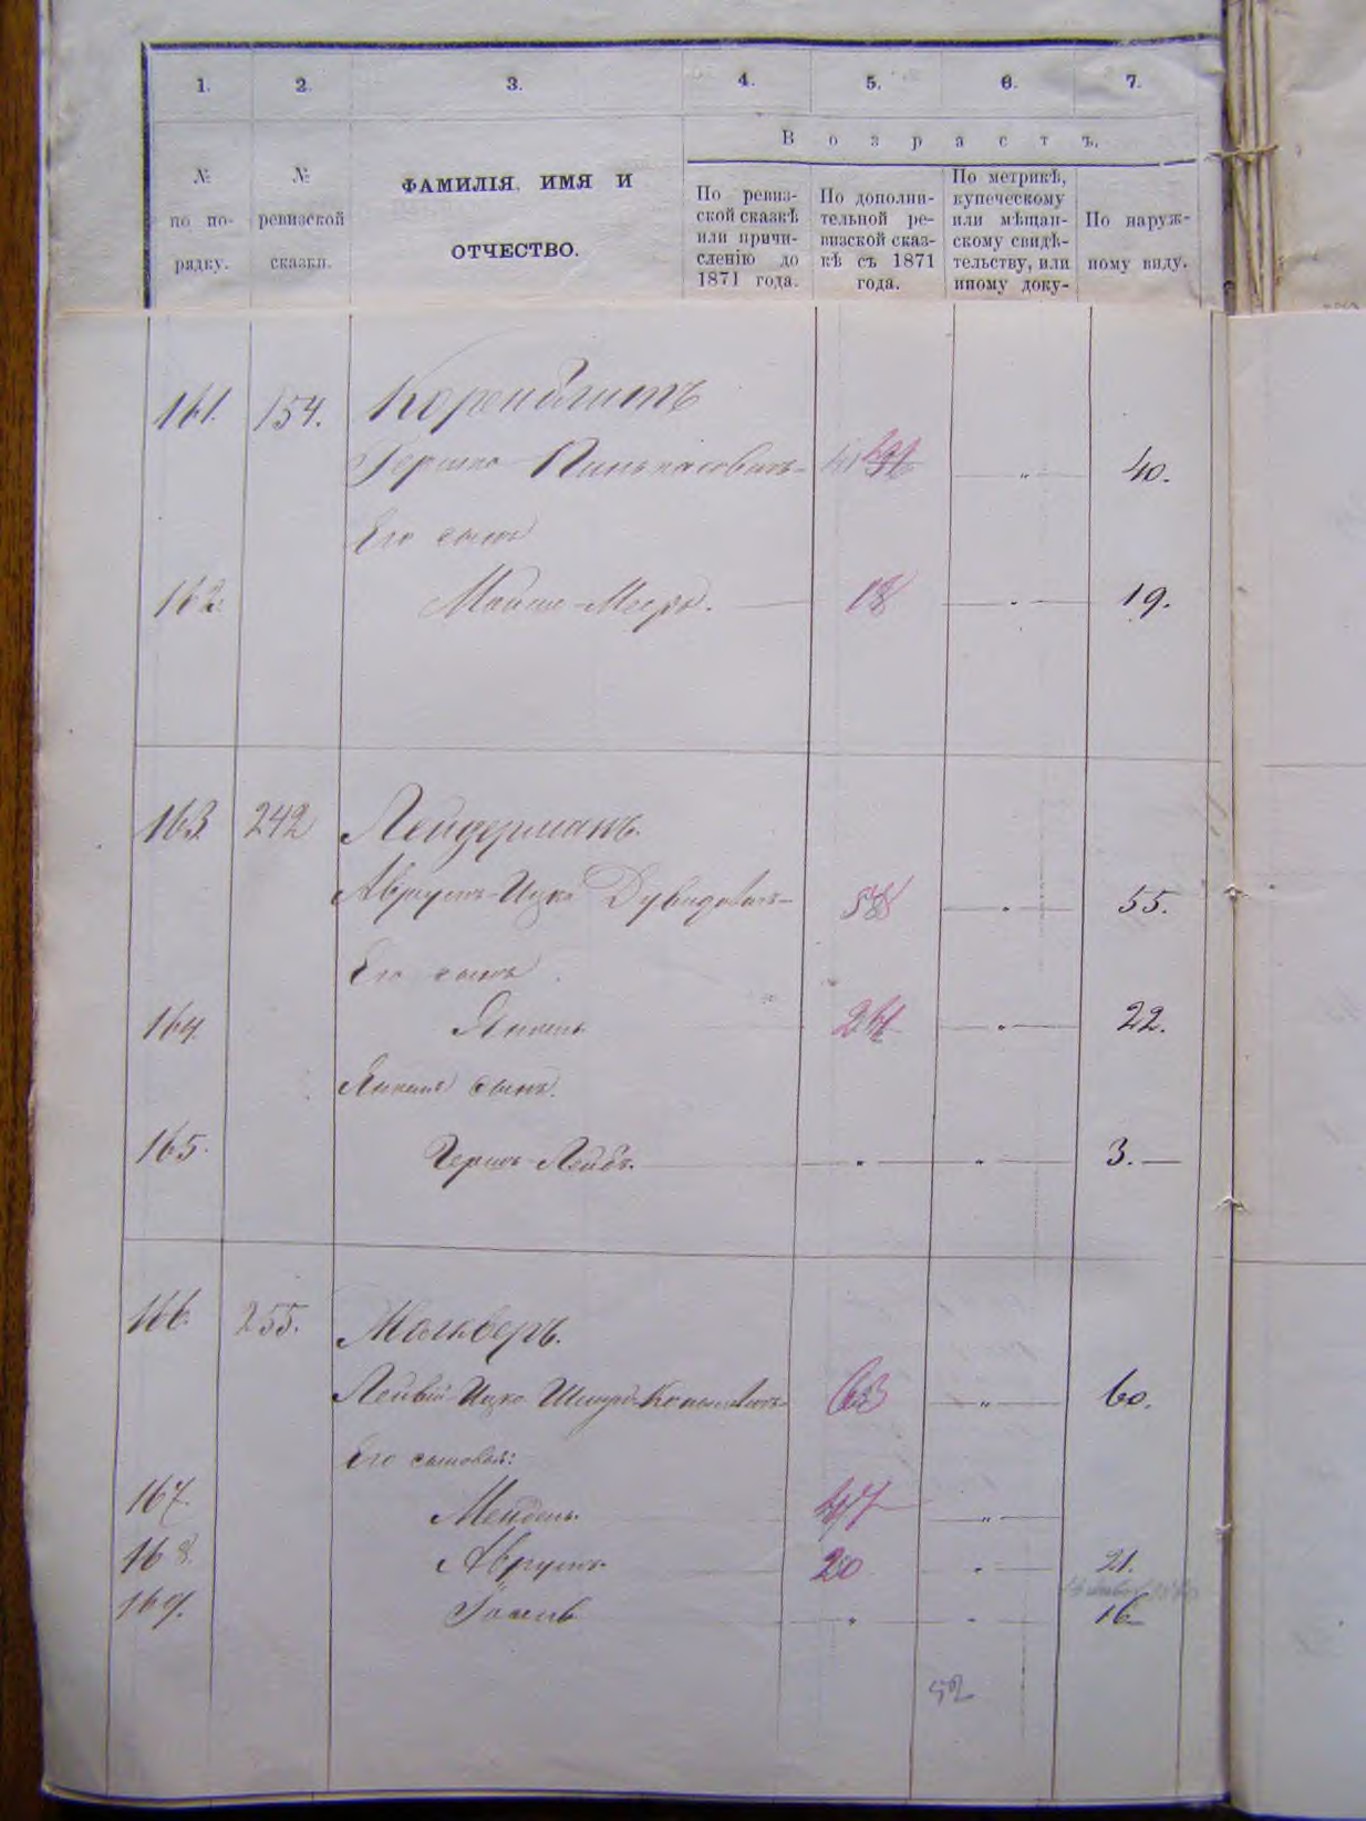 1. 2. 3. 4. 5. 6. 7.
В о з р а с т ъ.
№ по по- рядку.
№ ревизской сказки.
ФАМИЛІЯ, ИМЯ И
ОТЧЕСТВО.
По ревиз-
ской сказкѣ
или причи-
сленію до
1871 года.
По дополни-
тельной ре-
визской сказ-
кѣ съ 1871
года.
По метрикѣ,
купеческому
или мѣщан-
скому свидѣ-
тельству, или
иному доку-
По наруж-
ному виду.
161. 154. Коренблитъ
Гершко Пинькасовичъ 41 „ 40.
Его сынъ
162. Мойше-Мееръ. 18 „ 19.
163. 242 Лейдерманъ.
Аврумъ-Ицко Дувидовичъ 58 „ 55.
Его сынъ
164. Янкель „ 22.
Янкеля сынъ.
165. Гершъ-Лейбъ. „ „ 3.
166. 255. Молкверъ.
Лейвій-Ицко 63 „ 60.
Его сыновья:
167. Мендель „
168. Аврумъ 20 „ 21.
169. „ „ 16
52